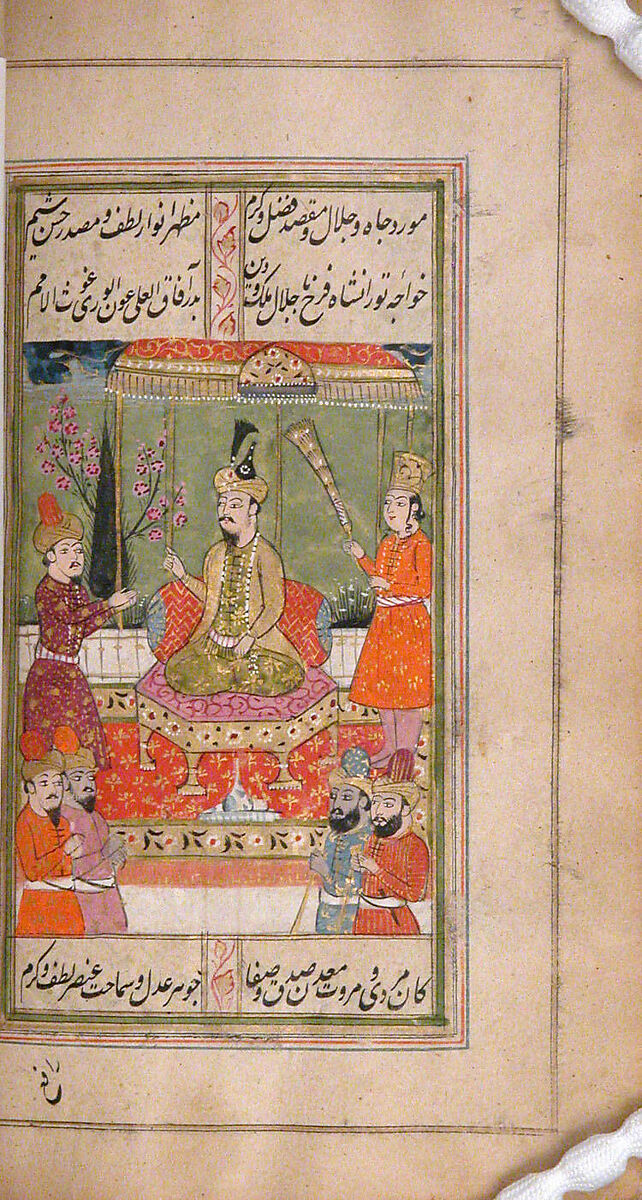 مورد جاه و جلال و مقصد فضل و کرم
مظهر انوار لطف و مصدر حسن شیم
خواجه تورانشاه فرخ با جلال ملک و دین
بدر آفاق العلی عون الوری غوث الامم
کان مردی و مروت معدن صدق و صفا
جوهر عدل و سماحت عنصر لطف و کرم